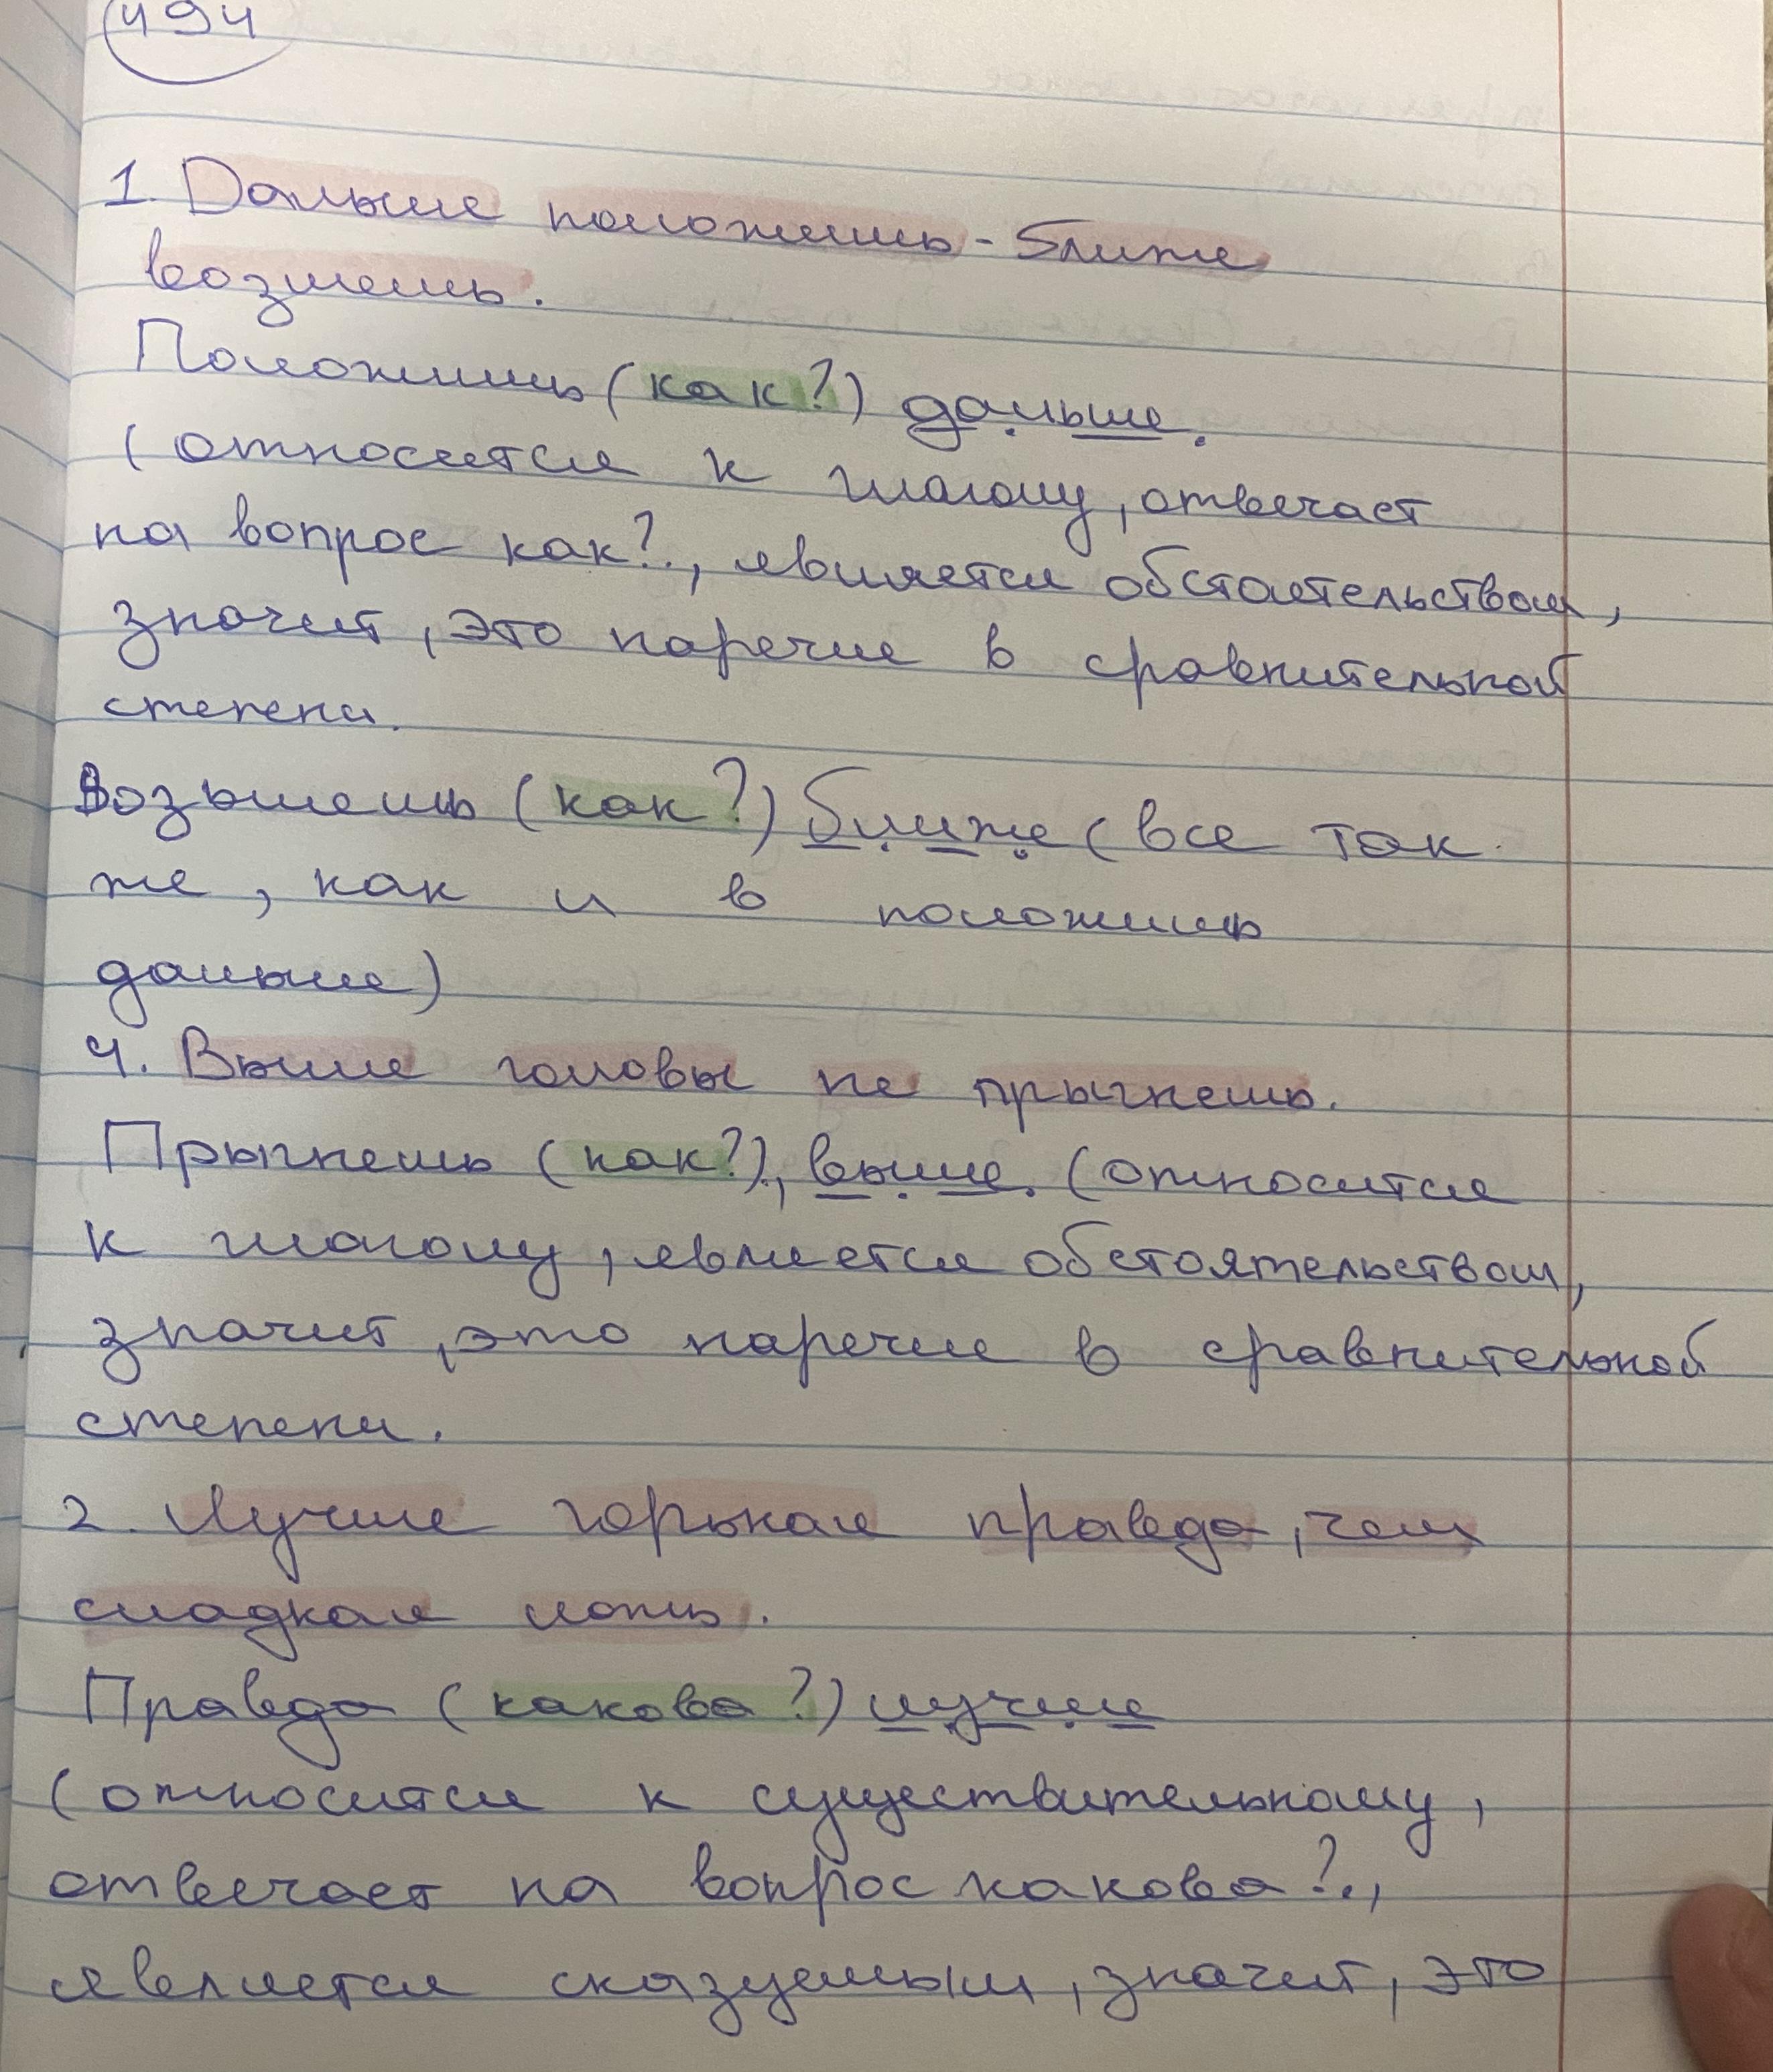 494
1. Дальше положишь - ближе
возмешь.
Положишь (как?) дальше.
(относится к глаголу, отвечает
на вопрос как?., является обстоятельством,
значит, это наречие в сравнительной
степени.
Возьмешь (как?) ближе (все так
же, как и в положишь
дальше)
4. Выше головы не прыгнешь.
Прыгнешь (как?), выше. (относится
к глаголу, является обстоятельством,
значит, это наречие в сравнительной
степени.
2. Лучше горькая правда, чем
сладкая ложь.
Правда (какова?) лучше
(относится к существительному,
отвечает на вопрос какова?.,
является сказуемым, значит, это